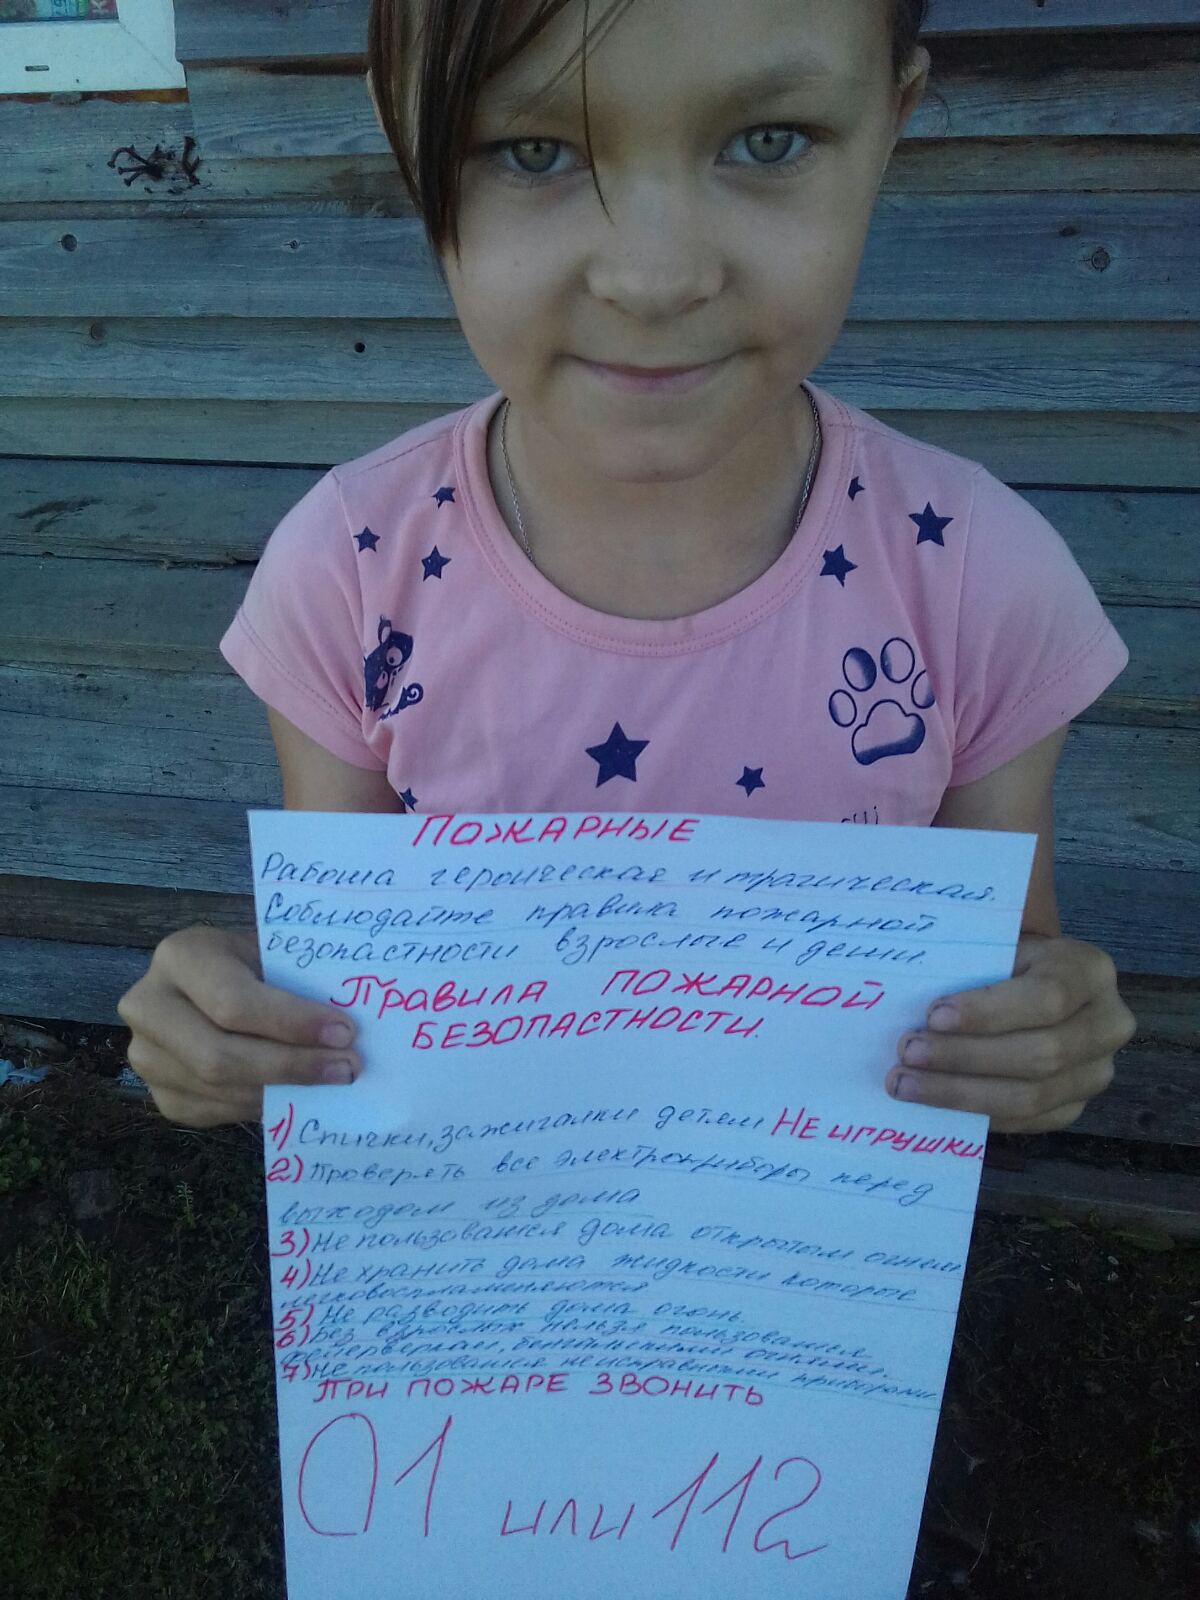 ПОЖАРНЫЕ
Работа героическая и трагическая.
Соблюдайте правила пожарной
безопастности взрослые и дети.
Правила ПОЖАРНОЙ
БЕЗОПАСТНОСТИ.
1) Спички, зажигалки детям НЕ ИГРУШКИ.
2) Проверять все электроприборы перед
выходом из дома
3) Не пользоваться дома открытым огнем
4) Не хранить дома жидкости которые
легковоспламеняются
5) Не разводить дома огонь.
6) Без взрослых нельзя пользоваться
фейерверками, бенгальскими огнями.
7) Не пользоваться неисправными приборами
ПРИ ПОЖАРЕ ЗВОНИТЬ
01 или 112